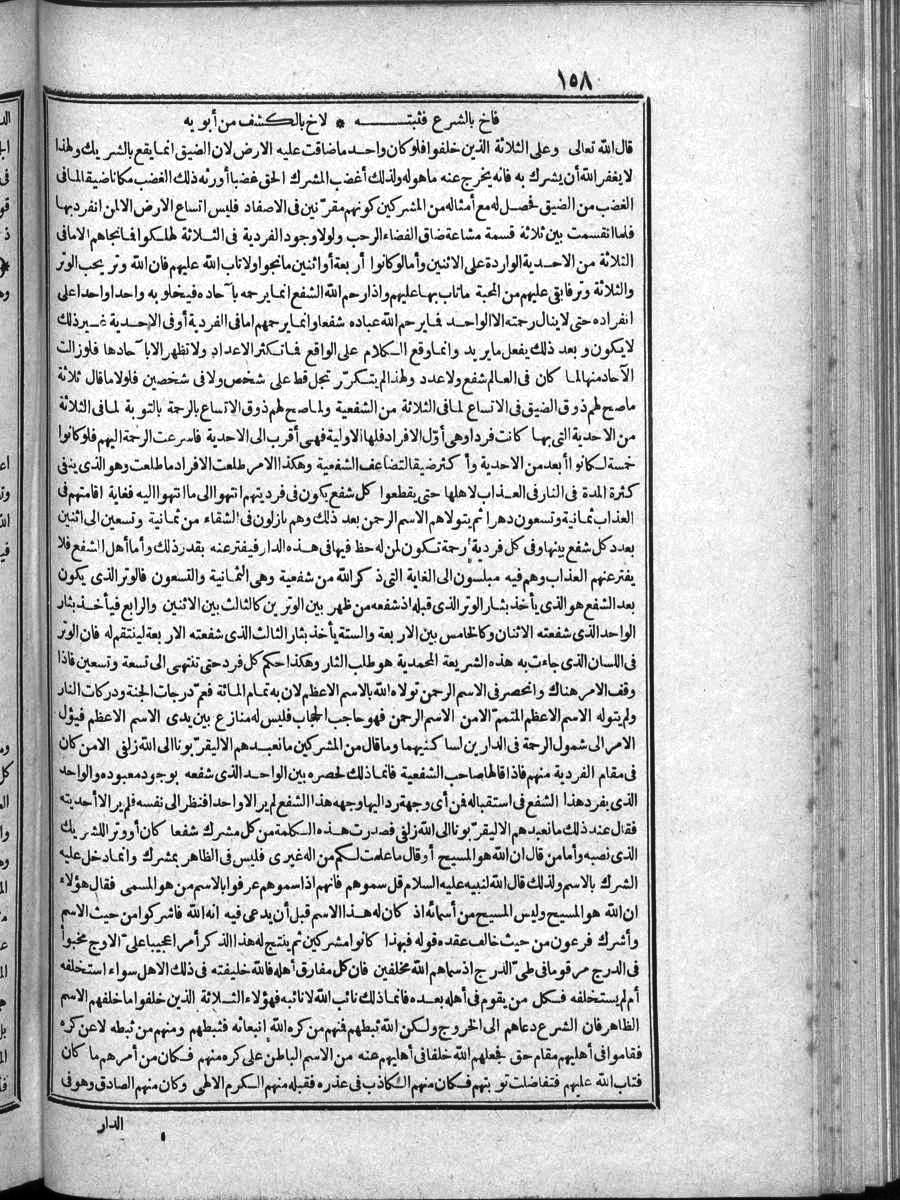 ١٥٨
فاخ بالشرع فثبتــــه * لاخ بالكشف من أبويه
قال الله تعالى وعلى الثلاثة الذين خلفوا فلو كان واحد ما ضاقت عليه الارض لان الضيق انما يقع بالشريك ولهذا
لا يغفر الله أن يشرك به فانه يخرج عنه ما هوله ولذلك أغضب المشرك الحق غضبا أورثه ذلك الغضب مكانا ضيقا لما فى
الغضب من الضيق فحصل له مع أمثاله من المشركين كونهم مقرّنين فى الاصفاد فليس اتساع الارض الا لمن انفرد بها
فلما انقسمت بين ثلاثة قسمة مشاعة ضاق الفضاء الرحب ولولا وجود الفردية فى الثلاثة لهلكوا فما نجاهم الا ما فى
الثلاثة من الاحدية الواردة على الاثنين وأما لو كانوا أربعة أو اثنين ما نجوا ولا تاب الله عليهم فان الله وتر يحب الوتر
والثلاثة وتر فابقى عليهم من المحبة ما تاب بها عليهم واذا رحم الله الشفع انما يرحمه بآحاده فيخلو به واحدا واحدا على
انفراده حتى لا ينال رحمته الا الواحد فما يرحم الله عباده شفعا وانما يرحمهم اما فى الفردية أو فى الاحدية غير ذلك
لا يكون وبعد ذلك يفعل ما يريد وانما وقع الكلام على الواقع فما تكثر الاعداد ولا تظهر الا بآحادها فلو زالت
الآحاد منها لما كان فى العالم شفع ولا عدد ولهذا لم يتكرّر تجل قط على شخص ولا فى شخصين فلولا ما قال ثلاثة
ما صح لهم ذوق الضيق فى الاتساع لما فى الثلاثة من الشفعية ولما صح لهم ذوق الاتساع بالرحمة بالتوبة لما فى الثلاثة
من الاحدية التى بها كانت فردا وهى أوّل الافراد فلها الاولية فهى أقرب الى الاحدية فاسرعت الرحمة اليهم فلو كانوا
خمسة لكانوا أبعد من الاحدية وأكثر ضيقا لتضاعف الشفعية وهكذا الامر طلعت الافراد ما طلعت وهو الذى ينفى
كثرة المدة فى النار فى العذاب لاهلها حتى يقطعوا كل شفع يكون فى فرديتهم انتهوا الى ما انتهوا اليه فغاية اقامتهم فى
العذاب ثمانية وتسعون دهرا ثم يتولاهم الاسم الرحمن بعد ذلك وهم نازلون فى الشقاء من ثمانية وتسعين الى اثنين
بعدد كل شفع بينها وفى كل فردية رحمة تكون لمن له حظ فيها فى هذه الدار فيفتر عنه بقدر ذلك وأما أهل الشفع فلا
يفتر عنهم العذاب وهم فيه مبلسون الى الغاية التى ذكر الله من شفعية وهى الثمانية والتسعون فالوتر الذى يكون
بعد الشفع هو الذى يأخذ بثار الوتر الذى قبله اذ شفعه من ظهر بين الوترين كالثالث بين الاثنين والرابع فيأخذ بثار
الواحد الذى شفعته الاثنان وكالخامس بين الاربعة والستة يأخذ بثار الثالث الذى شفعته الاربعة لينتقم له فان الوتر
فى اللسان الذى جاءت به هذه الشريعة المحمدية هو طلب الثار وهكذا حكم كل فرد حتى تنتهى الى تسعة وتسعين فاذا
وقف الامر هناك وانحصر فى الاسم الرحمن تولاه الله بالاسم الاعظم لان به تمام المائة فعمّ درجات الجنة ودركات النار
ولم يتوله الاسم الاعظم المتمم الا من الاسم الرحمن فهو حاجب الحجاب فليس له منازع بين يدى الاسم الاعظم فيؤل
الامر الى شمول الرحمة فى الدارين لساكنيهما وما قال من المشركين ما نعبدهم الا ليقرّبونا الى الله زلفى الا من كان
فى مقام الفردية منهم فاذا قالها صاحب الشفعية فانما ذلك لحصره بين الواحد الذى شفعه بوجود معبوده والواحد
الذى يفرد هذا الشفع فى استقباله فن أى وجهة رد اليها وجهه هذا الشفع لم ير الا واحدا فنظر الى نفسه فلم ير الا أحديته
فقال عند ذلك ما نعبدهم الا ليقرّبونا الى الله زلفى فصدرت هذه الكلمة من كل مشرك شفعا كان أو وترا للشريك
الذى نصبه وأما من قال ان الله هو المسيح أو قال ما علمت لكم من اله غيرى فليس فى الظاهر بمشرك وانما دخل عليه
الشرك بالاسم ولذلك قال الله لنبيه عليه السلام قل سموهم فانهم اذا سموهم عرفوا بالاسم من هو المسمى فقال هؤلاء
ان الله هو المسيح وليس المسيح من أسمائه اذ كان له هذا الاسم قبل أن يدعى فيه انه الله فاشركوا من حيث الاسم
وأشرك فرعون من حيث خالف عقده قوله فبهذا كانوا مشركين ثم ينتج له هذا الذكر أمرا عجيبا على الاوج مخبوأ
فى الدرج مرقوما فى طىّ الدرج اذ سماهم الله مخلفين فان كل مفارق أهله فالله خليفته فى ذلك الاهل سواء استخلفه
أم لم يستخلفه فكل من يقوم فى أهله بعده فانما ذلك نائب الله لا نائبه فهؤلاء الثلاثة الذين خلفوا ما خلفهم الاسم
الظاهر فان الشرع دعاهم الى الخروج ولكن الله ثبطهم فنهم من كره الله انبعاثه فثبطهم ومنهم من ثبطه لا عن كره
فقاموا فى أهليهم مقام حق فجعلهم الله خلفا فى أهليهم عنه من الاسم الباطن على كره منهم فكان من أمرهم ما كان
فتاب الله عليهم فتفاضلت توبتهم فكان منهم الكاذب فى عذره فقبله منهم الكرم الالهى وكان منهم الصادق وهو فى
الدار